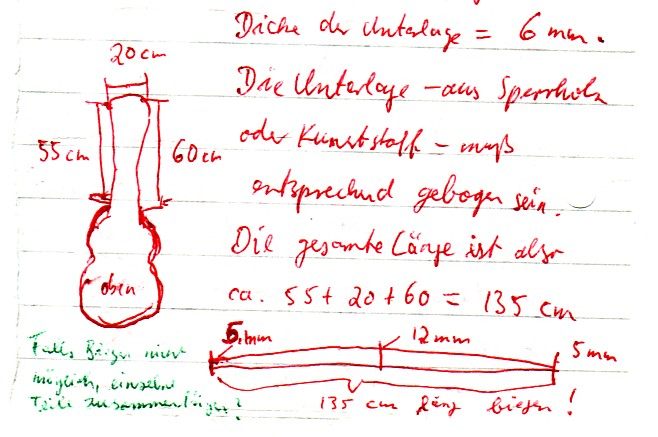 Dicke der Unterlage = 6 mm.
20 cm
Die Unterlage - aus Sperrholz
55 cm
60 cm
oder Kunststoff - muß
entsprechend gebogen sein.
Die gesamte Länge ist also
oben
ca. 55 + 20 + 60 = 135 cm
5 mm
12 mm
5 mm
Falls Biegen nicht
möglich, einzelne
Teile zusammenfügen?
135 cm lang biegen!